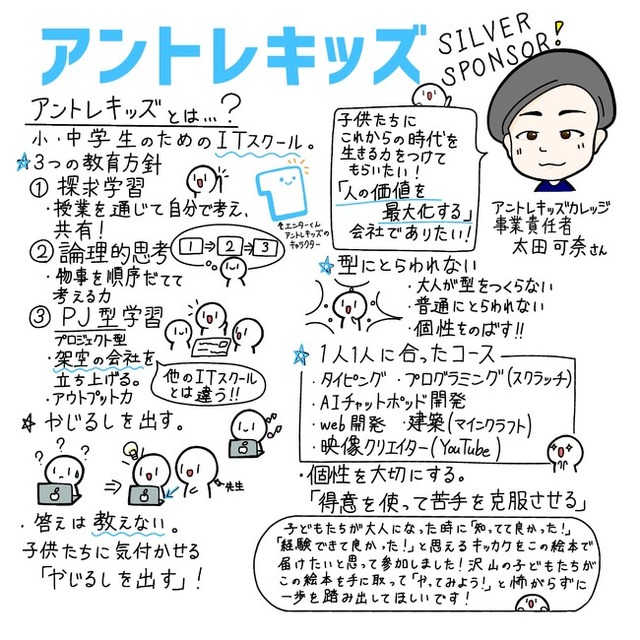 アントレキッズ
SILVER
SPONSOR!
アントレキッズとは…?
小・中学生のためのITスクール。
☆3つの教育方針
① 探求学習
・授業を通じて自分で考え、
共有!
② 論理的思考
・物事を順序だてて
考える力
1⇒2⇒3
③ PJ型学習
プロジェクト型
・架空の会社を
立ち上げる。
・アウトプット力
他のITスクール
とは違う!!
エンターくん
アントレキッズの
キャラクター
☆ やじるしを出す。
? ? ?
先生
・答えは教えない。
子供たちに気付かせる
「やじるしを出す」!
子供たちに
これからの時代を
生きる力をつけて
もらいたい!
「人の価値を
最大化する」
会社でありたい!
アントレキッズカレッジ
事業責任者
太田可奈さん
☆型にとらわれない
・大人が型をつくらない
・普通にとらわれない
・個性をのばす!!
☆1人1人に合ったコース
・タイピング ・プログラミング(スクラッチ)
・AIチャットポッド開発
・web開発 ・建築(マインクラフト)
・映像クリエイター(YouTube)
・個性を大切にする。
「得意を使って苦手を克服させる」
子どもたちが大人になった時に「知ってて良かった!」
「経験できて良かった!」と思えるキッカケをこの絵本で
届けたいと思って参加しました!沢山の子どもたちが
この絵本を手に取って「やってみよう!」と怖がらずに
一歩を踏み出してほしいです!